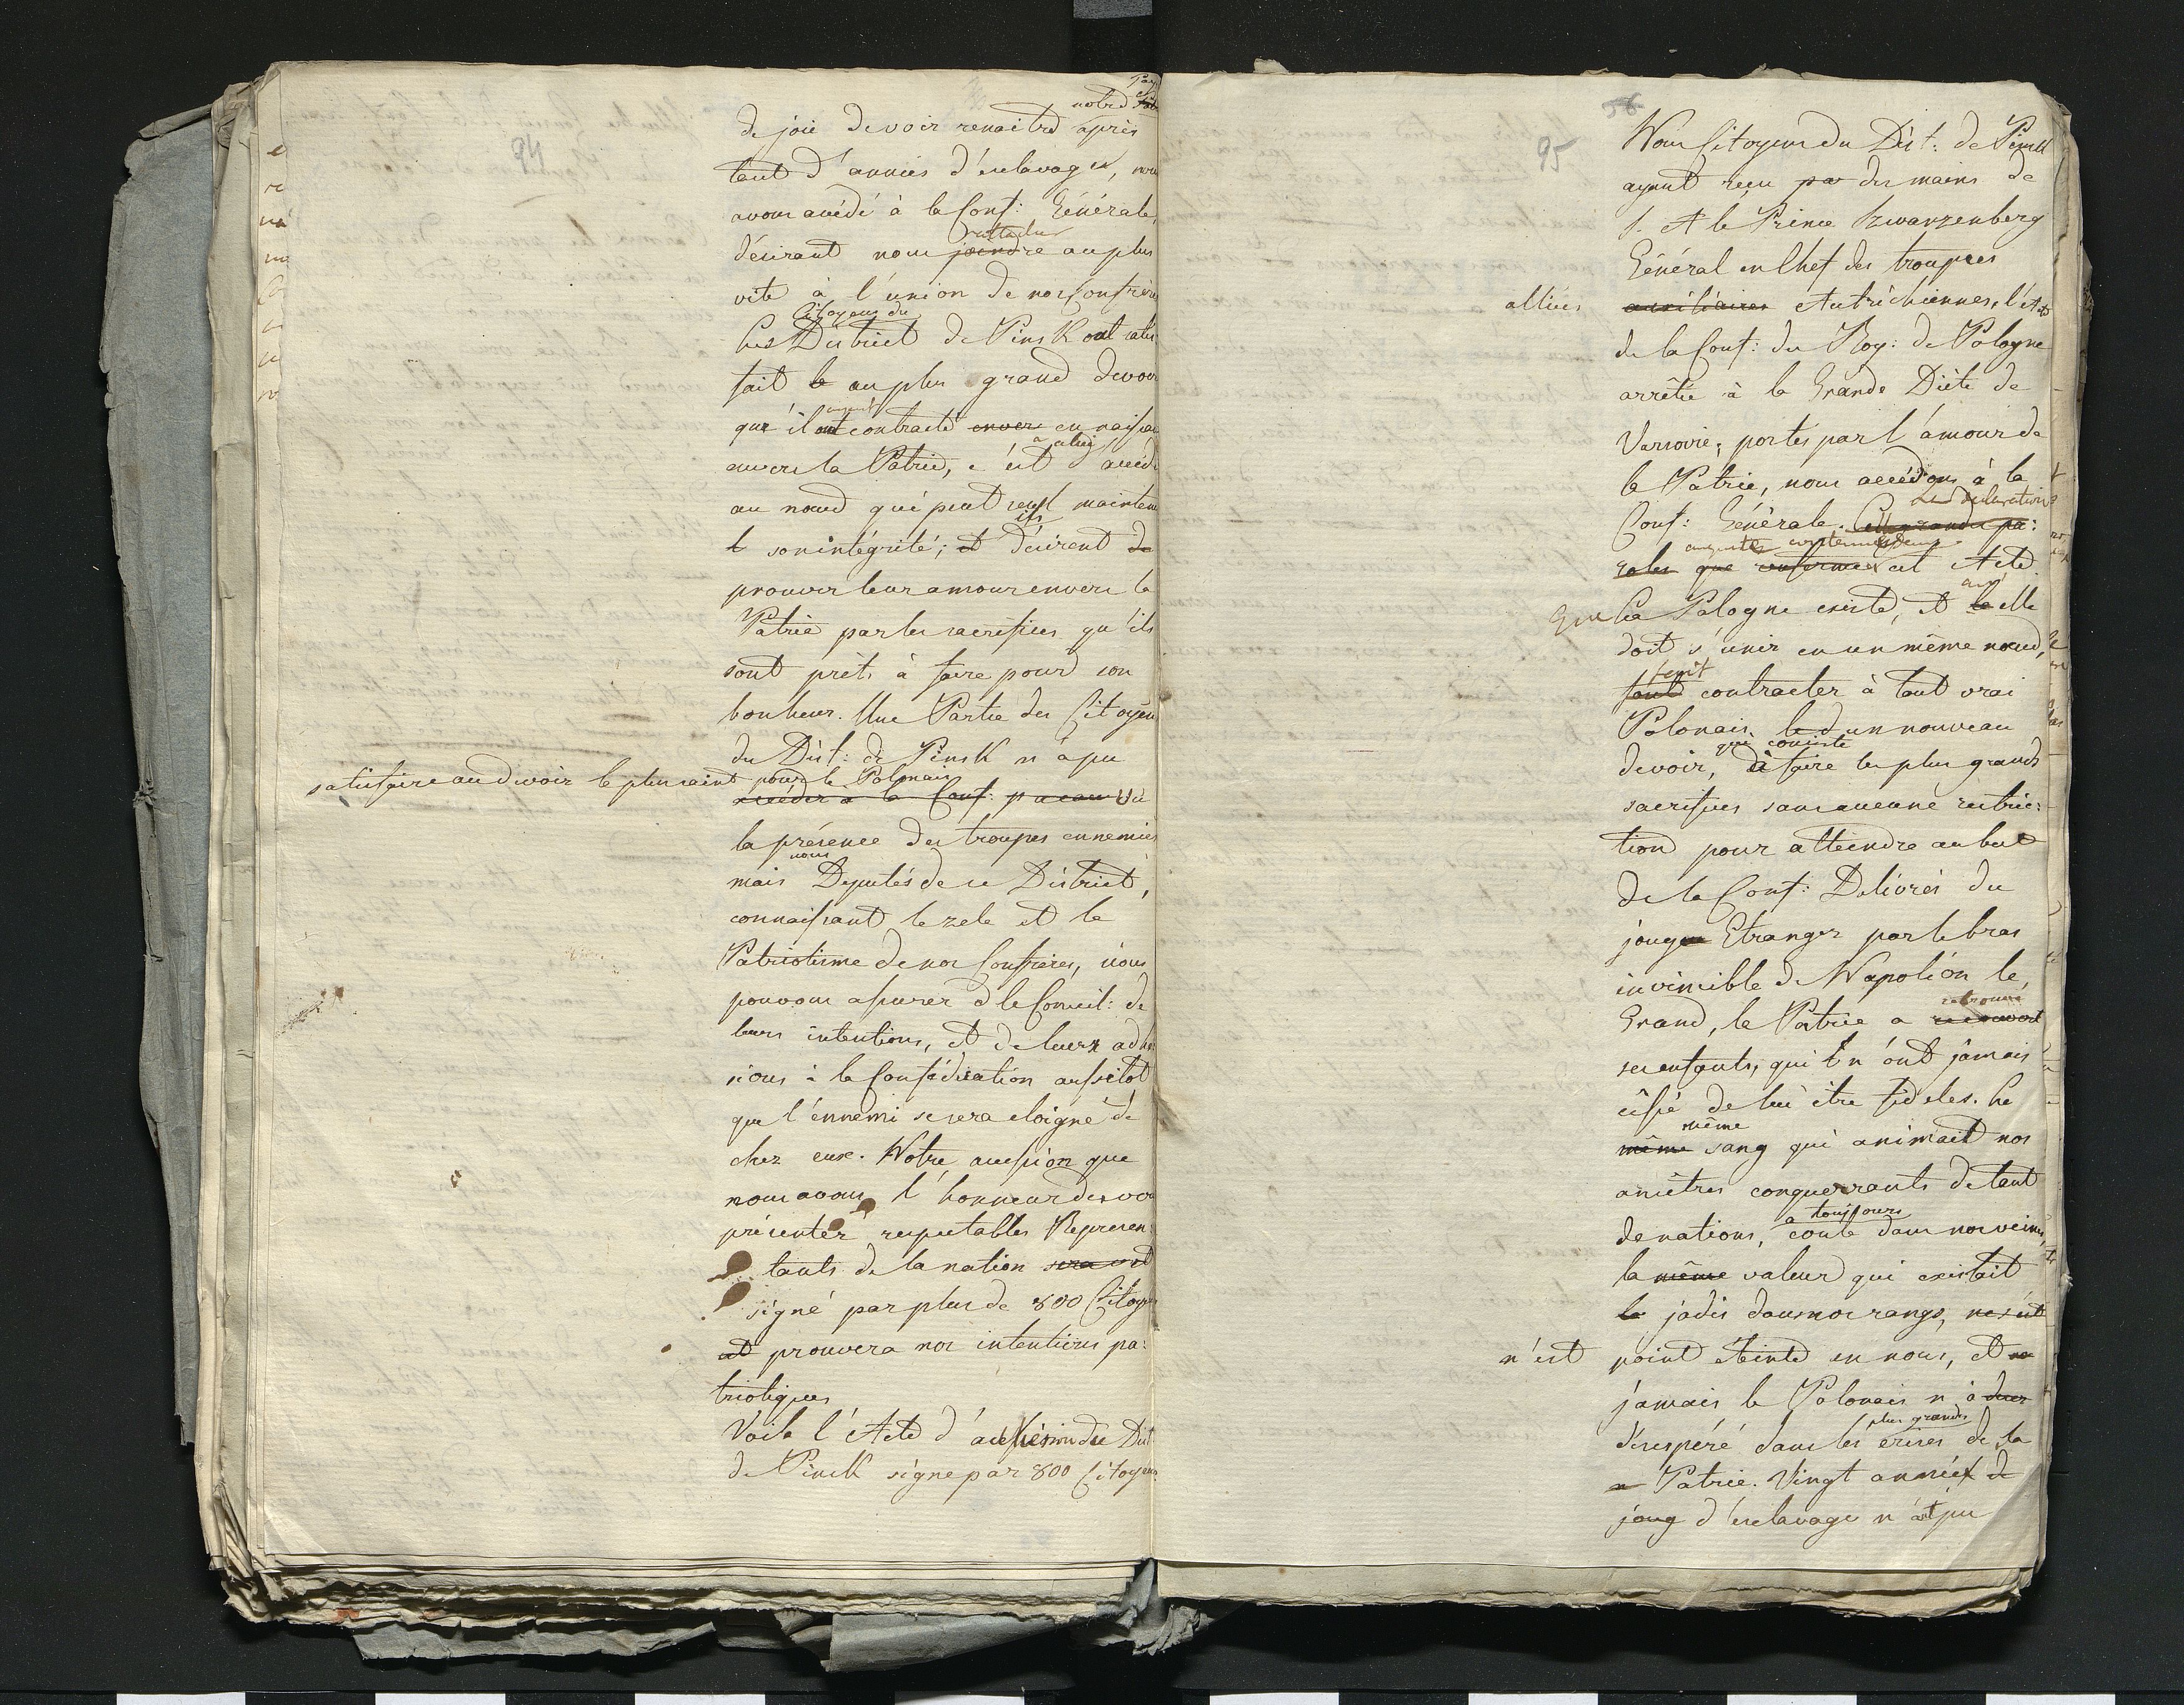 94
notre
de joie de voir renaitre après
tant d'années d'esclavages, nous
avons accédé à la Conf: Générale,
rattacher
désirant nous joindre au plus
vite à l'union de nos Confrères
Citoyens du
Les District de Pinsk ont satis
fait le au plus grand devoir
qu'il ont contracté envers en naissa
envers la Patrie, c'est à celui accéd
au nœud qui peut seul mainten
ils
l son intégrité; et désirent de
prouver leur amour envers la
Patrie par les sacrifices qu'ils
sont prêts à faire pour son
bonheur. Une Partie des Citoyens
du Dist: de Pinsk n'a pu
satisfaire au devoir le plus saint pour le Polonais
accéder à la Conf: vu
la présence des troupes ennemies
nous
mais Deputés de ce District,
connaissant le zele et le
Patriotisme de nos Confrères, nous
pouvons assurer d le Conseil: de
leurs intentions, et de leurs adhé
sions à la Confédération aussitot
que l'ennemi se sera eloigné de
chez eux. Notre accession que
nous avons l'honneur de vou
présenter respectables Represen:
tants de la nation sera est
signé par plus de 800 Citoyens
et prouvera nos intentions pa:
triotiques
Voila l'Acte d'adhésion du Dist
de Pinsk signe par 800 Citoyens
56
95
Nous Citoyens du Dist: de Pinsk
ayant reçu par des mains de
S. A le Prince Szwarzenberg
Général en Chef des troupes
alliées auxiliaires Autrichiennes, l'Acte
de la Conf: du Roy: de Pologne
arrêtée à la Grande Diète de
Varsovie, portés par l'amour de
la Patrie, nous accédons à la
declaration
Conf: Générale. Cette grande pa:
augustes contenues dans
roles que renferme cet Acte
ainsi
Que La Pologne existe, et le elle
doit s'unir en un même nœud,
font
font contracter à tout vrai
Polonais, le d un nouveau
qui consiste
devoir, à faire les plus grands
sacrifices sans aucune restric:
tion pour atteindre au but
de la Conf: Delivrés du
joug Etranger par le bras
invincible de Napoléon le
retrouvé
Grand, la Patrie a recouvert
ses enfants, qui n'ont jamais
cessé de lui être fideles. Le
même
même sang qui animait nos
ancêtres conquerrants de tant
a toujours
de nations, coule dans nos veines,
la même valeur qui existait
le jadis dans nos rangs, nes'est
n'est point éteinte en nous, et ne
jamais le Polonais n'a
plus grandes
désespéré dans les crises de la
Patrie. Vingt années de
joug d'esclavage n'ont pu